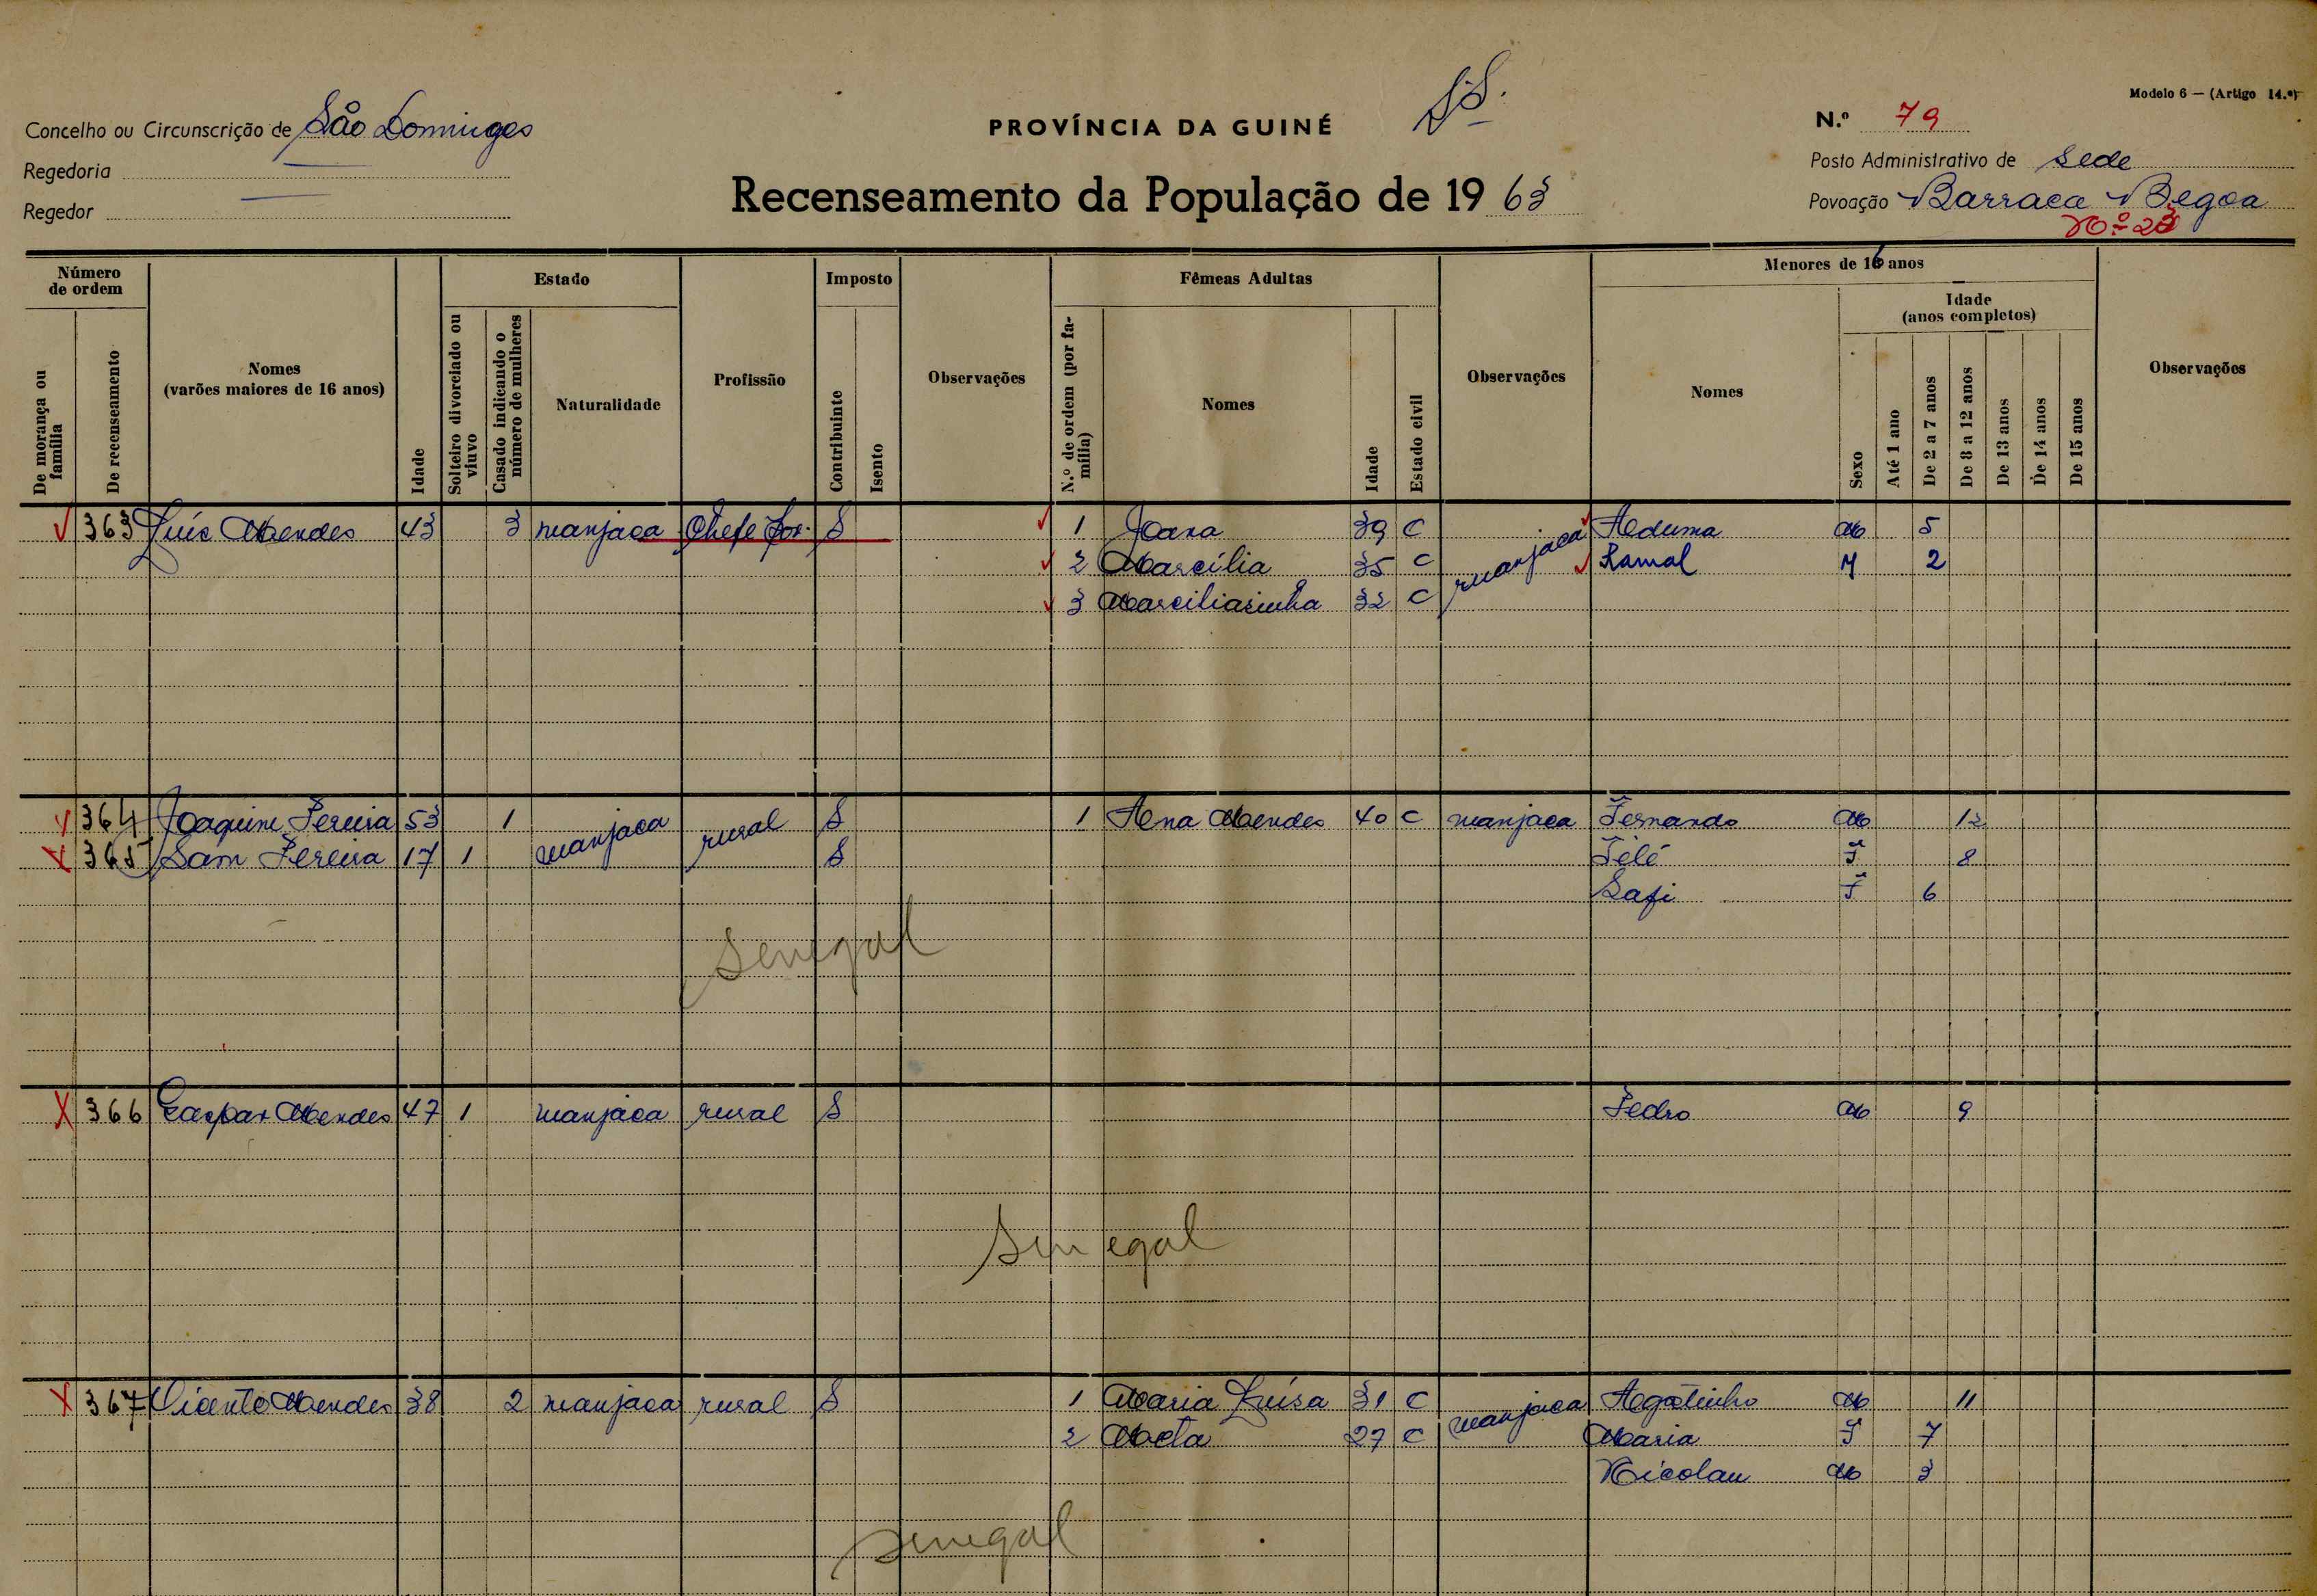 Modelo 6 — (Artigo 14.º)
Concelho ou Circunscrição de São Domingos
PROVÍNCIA DA GUINÉ
N.º 79
Regedoria
Posto Administrativo de Sede
Regedor
Recenseamento da População de 1963
Povoação Barraca Begoa
Nº 23
Número de ordem
Estado
Imposto
Fêmeas Adultas
Menores de 16 anos
Idade
(anos completos)
De morança ou família
De recenseamento
Nomes
(varões maiores de 16 anos)
Idade
Solteiro divorciado ou viuvo
Casado indicando o número de mulheres
Naturalidade
Profissão
Contribuinte
Isento
Observações
N.º de ordem (por família)
Nomes
Idade
Estado civil
Observações
Nomes
Sexo
Até 1 ano
De 2 a 7 anos
De 8 a 12 anos
De 13 anos
De 14 anos
De 15 anos
Observações
363 Luís Mendes 43 3 manjaca Chefe Pov. S 1 Joana 39 C manjaca Aduma M 5
2 Marcília 35 C Ramal M 2
3 Marciliazinha 32 C
364 Joaquim Pereira 53 1 manjaca rural S 1 Ana Mendes 40 C manjaca Fernando M 12
365 Sam Pereira 17 1 S Félé F 8
Safi F 6
Senegal
366 Gaspar Mendes 47 1 manjaca rural S Pedro M 9
Senegal
367 Vicente Mendes 38 2 manjaca rural S 1 Maria Luísa 31 C manjaca Agostinho M 11
2 Meta 27 C Maria F 7
Nicolau M 3
Senegal